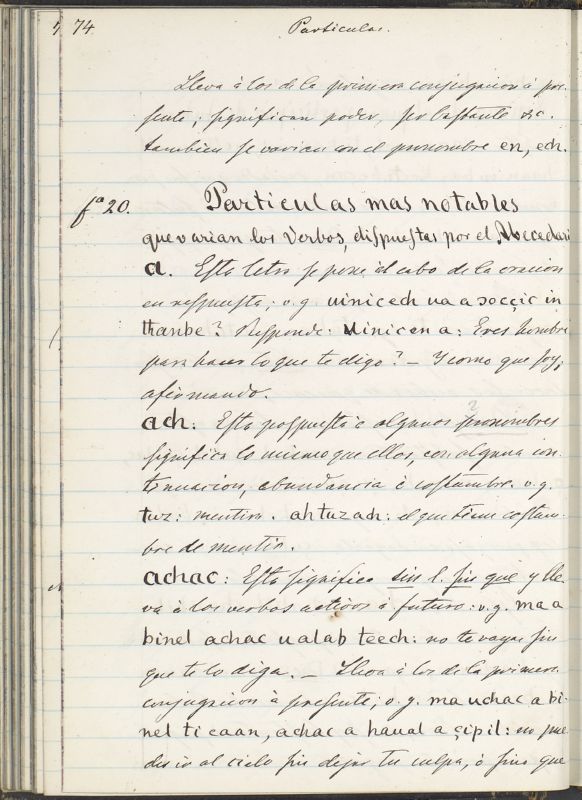 74 Particulas.
Lleva à los de la primera conjugacion à pre-
sente; significan poder, ser bastante &c.
tambien se varian con el pronombre en, ech.
fª 20. Particulas mas notables
que varian los Verbos, dispuestas por el Abecedari
a. Esta letra se pone al cabo de la oracion
en respuesta; v.g. uinicech ua a socçic in
thanbe? Responde: Uinicen a: Eres hombre
para hacer lo que te digo? — Y como que soy,
afirmando.
ach: Esta pospuesta à algunos pronombres
significa lo mismo que ellos, con alguna con-
tinuacion, abundancia ò costumbre. v.g.
tuz: mentira. ahtuzach: el que tiene costum-
bre de mentir.
achac: Esta significa sin l. sin que y lle-
va à los verbos activos à futuro: v.g. ma a
binel achac ualab teech: no te vayas sin
que te lo diga. — Lleva à los de la primera
conjugacion à presente; v.g. ma uchac a bi-
nel ti caan, achac a haual a çipil: no pue-
des ir al cielo sin dejar tu culpa, ò sin que